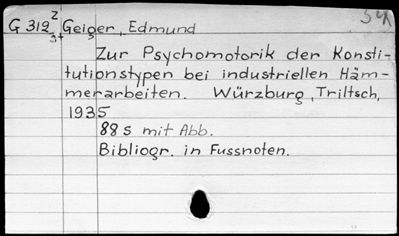 G 312 2/3+ Geiger, Edmund
Zur Psychomotorik der Konsti-
tutionstypen bei industriellen Häm-
merarbeiten. Würzburg, Triltsch,
1935
88 s mit Abb.
Bibliogr. in Fussnoten.